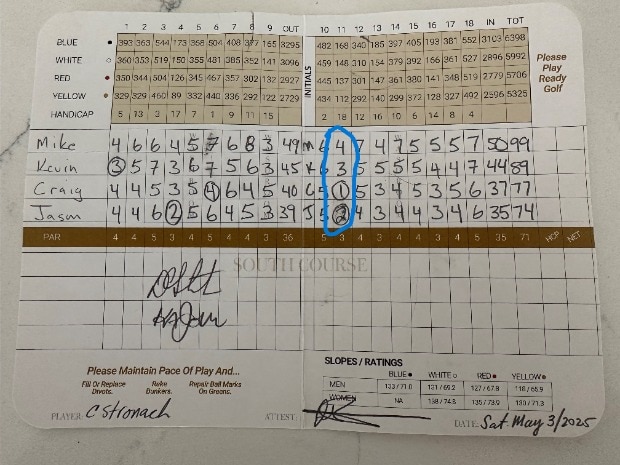 1 2 3 4 5 6 7 8 9 OUT INITIALS 10 11 12 13 14 15 16 17 18 IN TOT
BLUE 393 363 544 173 358 504 408 377 165 3295 482 168 340 185 397 405 193 381 552 3103 6398
WHITE 360 353 519 150 355 481 385 352 141 3096 459 148 310 154 379 392 166 361 527 2896 5992
RED 350 344 504 126 345 467 357 302 132 2927 445 137 301 147 361 380 141 348 519 2779 5706
YELLOW 329 329 460 89 332 440 336 292 122 2729 434 112 292 140 299 372 128 327 492 2596 5325
HANDICAP 5 13 3 17 7 1 9 11 15 2 18 12 16 10 6 14 8 4
Please
Play
Ready
Golf
Mike 4 6 6 4 5 7 6 8 3 49 M 6 4 7 4 7 5 5 5 7 50 99
Kevin 3 5 7 3 6 7 5 6 3 45 K 6 3 5 5 5 5 4 4 7 44 89
Craig 4 4 5 3 5 4 6 4 5 40 C 5 1 5 3 4 5 3 5 6 37 77
Jason 4 4 6 2 5 6 4 5 3 39 J 5 2 4 3 4 4 3 4 6 35 74
PAR 4 4 5 3 4 5 4 4 3 36 5 3 4 3 4 4 3 4 5 35 71 HCP NET
SOUTH COURSE
Please Maintain Pace Of Play And...
Fill Or Replace Divots. Rake Bunkers. Repair Ball Marks On Greens.
SLOPES / RATINGS
BLUE WHITE RED YELLOW
MEN 133/71.0 131/69.2 127/67.8 118/65.9
WOMEN NA 138/74.8 135/73.9 130/71.3
PLAYER: C Stronach ATTEST: DATE: Sat May 3/2025